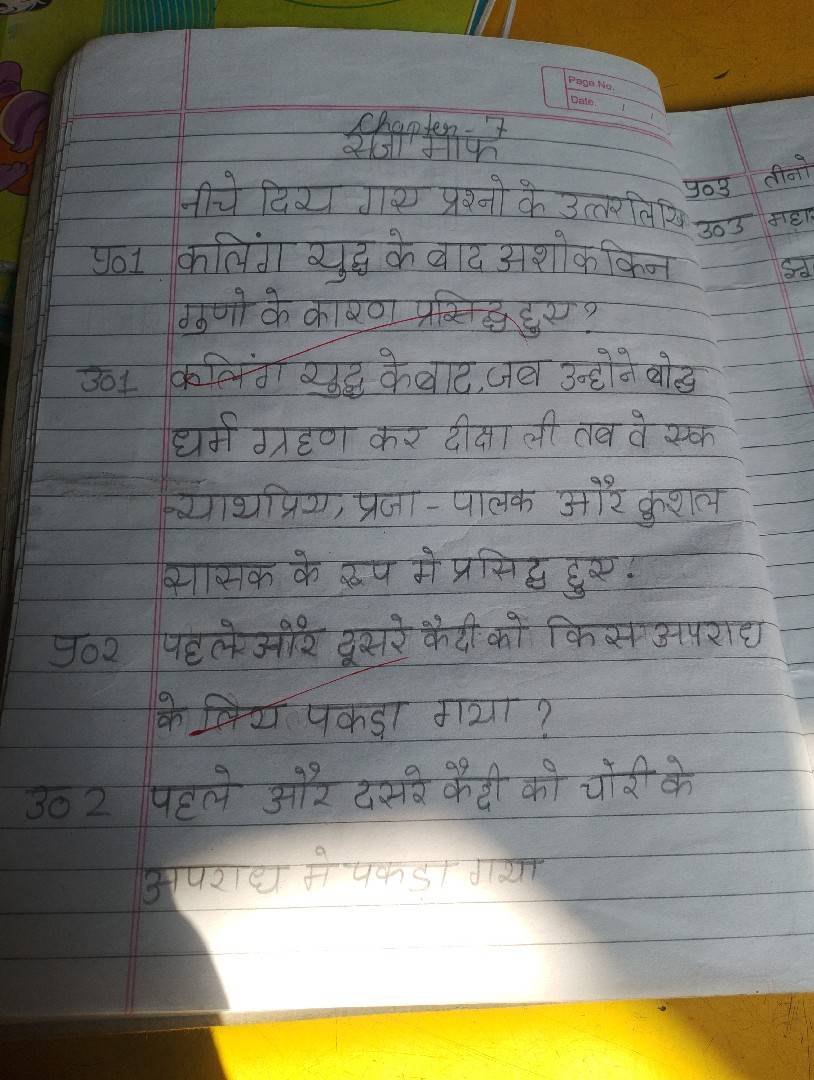 Page No.
Date. / /
Chapter-7
सजा माफ
नीचे दिए गए प्रश्नो के उत्तर लिखि
प्र01 कलिंग युद्ध के बाद अशोक किन
गुणो के कारण प्रसिद्ध हुए?
उ01 कलिंग युद्ध के बाद, जब उन्होने बोद्ध
धर्म ग्रहण कर दीक्षा ली तब वे एक
न्यायप्रिय, प्रजा-पालक और कुशल
सासक के रूप मे प्रसिद्ध हुए:
प्र02 पहले और दूसरे कैदी को किस अपराध
के लिए पकड़ा गया?
उ0 2 पहले और दसरे कैदी को चोरी के
अपराध मे पकडा गया
प्र03 तीनो
उ03